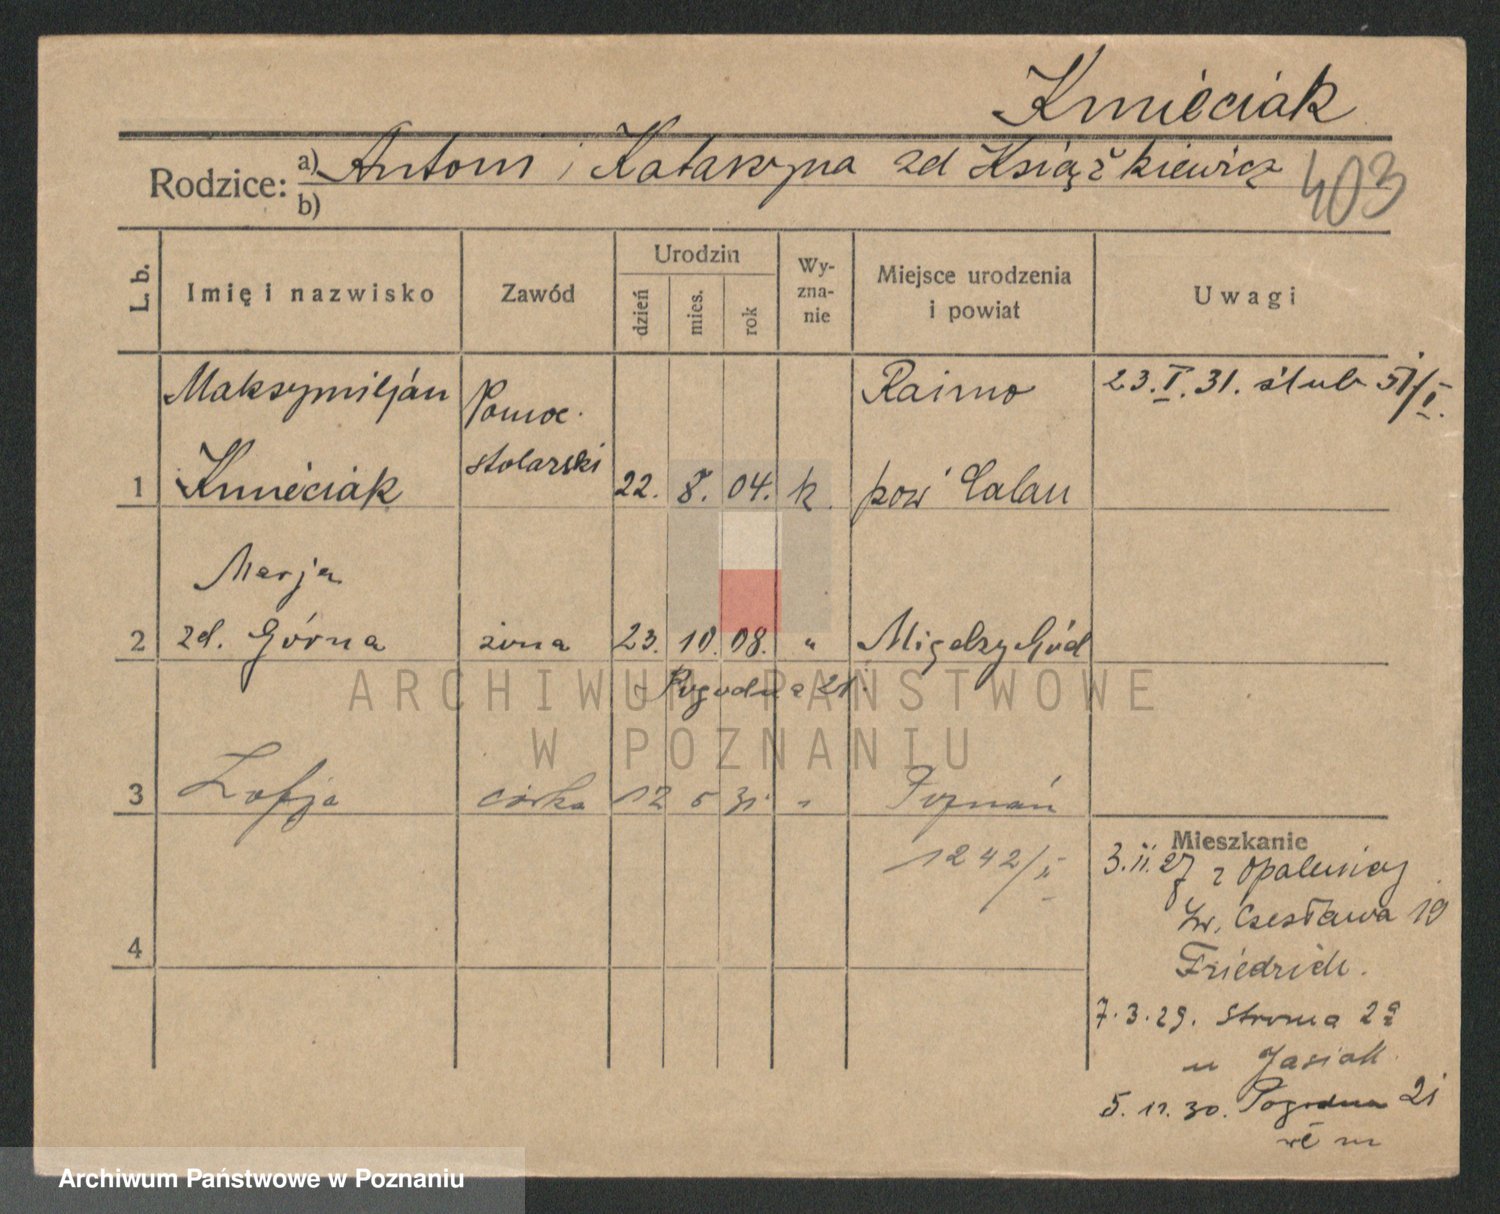 Kmieciak
Rodzice: a) Antoni i Katarzyna zd Książkiewicz
b)
403
L. b.
Imię i nazwisko
Zawód
Urodzin
dzień
mies.
rok
Wy-
zna-
nie
Miejsce urodzenia
i powiat
Uwagi
Maksymiljan
Pomoc.
Raimo
23.I.31. ślub 51/I.
1 Kmieciak
stolarski
22. 8. 04. k.
pow Calau
Marja
2 zd. Górna żona 23. 10. 08. " Międzychód
Pogodna 21.
ARCHIWUM PAŃSTWOWE
W POZNANIU
3 Zofja córka 12 5 31 " Poznań
1242/
Mieszkanie
3.II.27 z Opalenicy
Czesława 19
4
Friedrich.
7.3.29. Stroma 22
u Jasiak
5.11.30. Pogodna 21
Archiwum Państwowe w Poznaniu